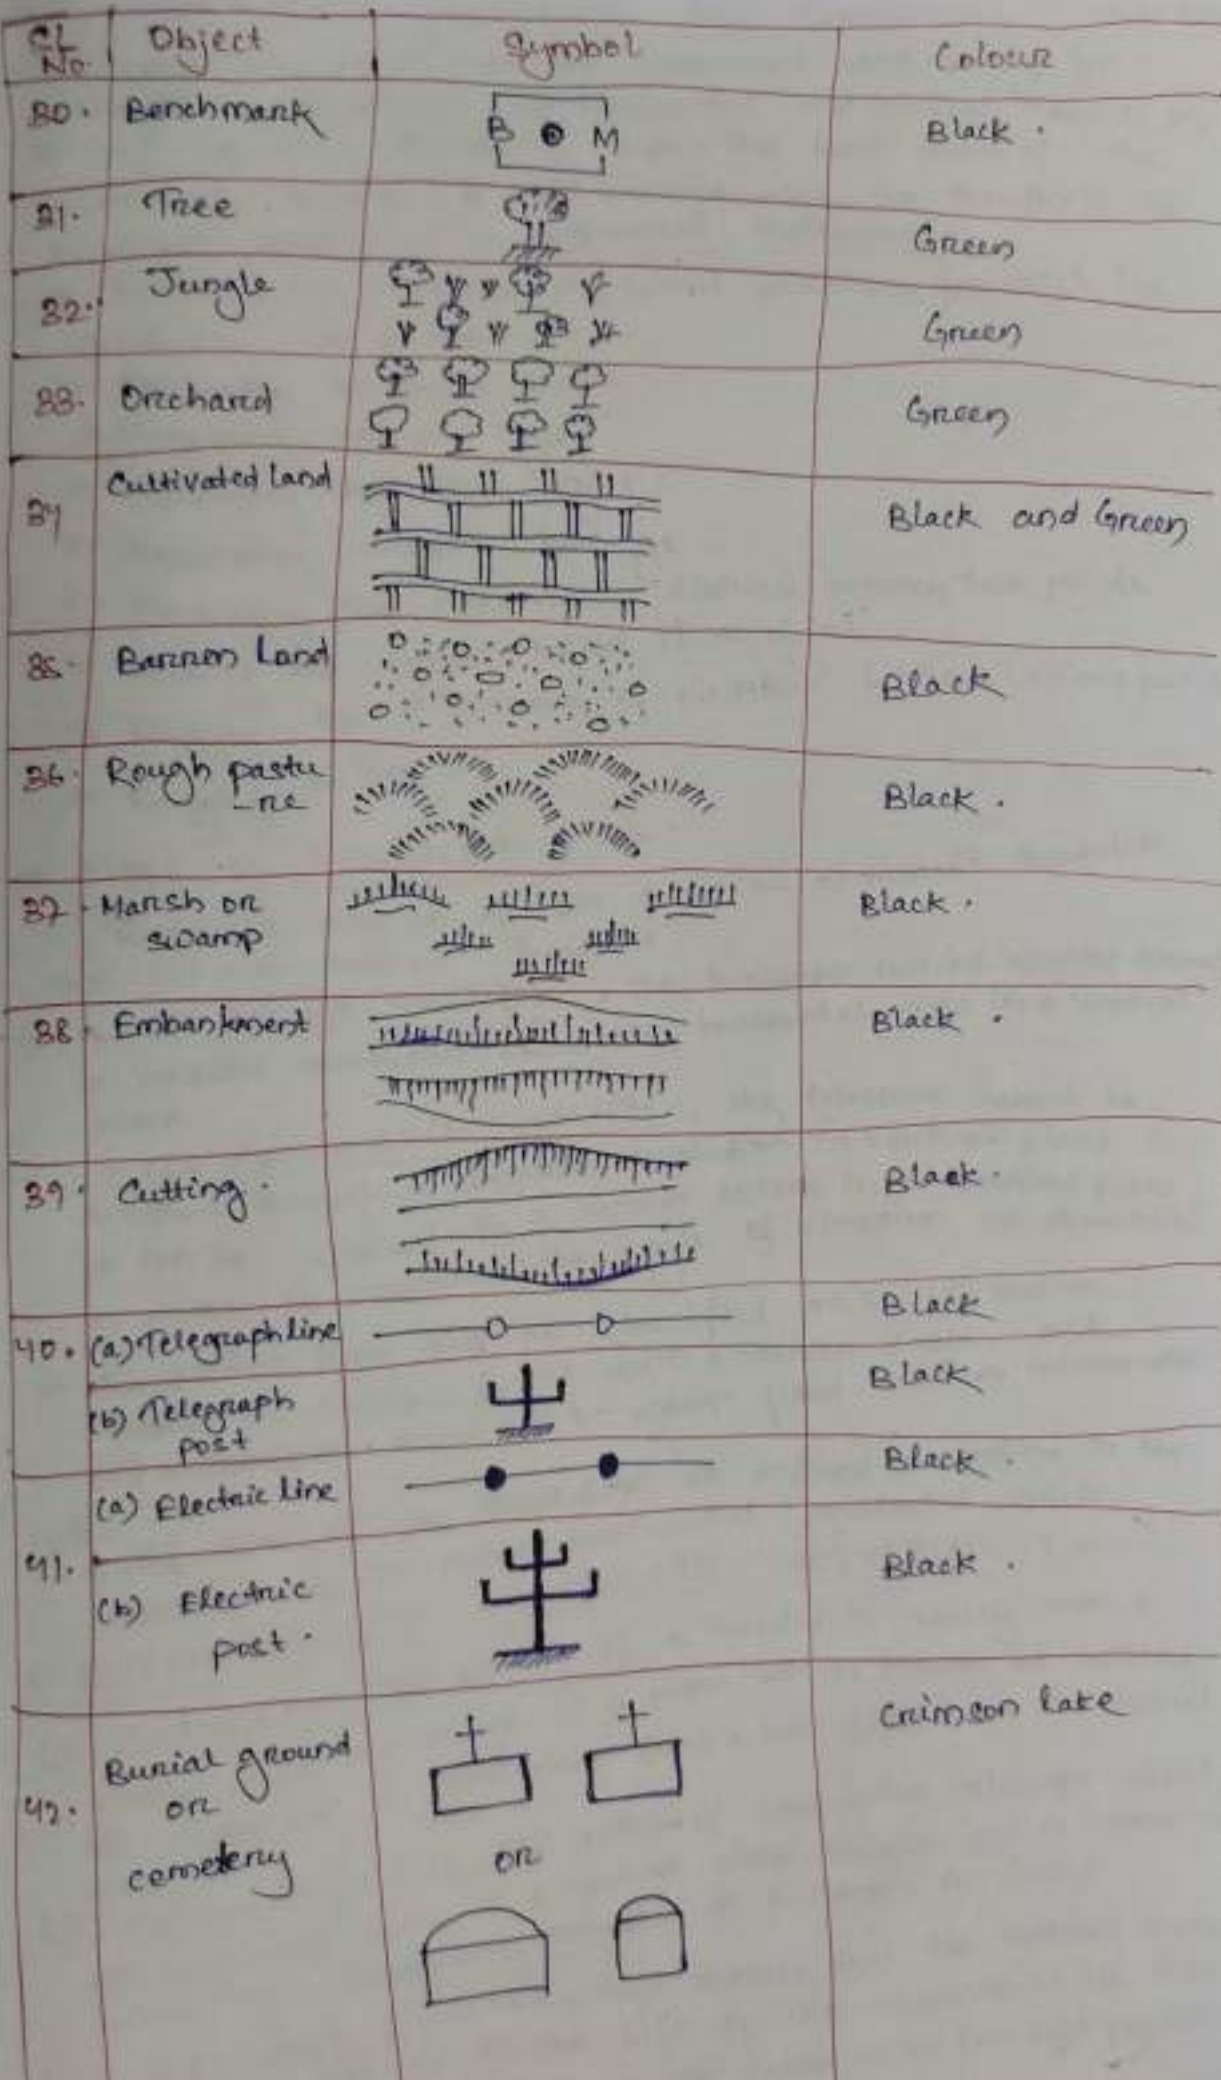 SL No. Object Symbol Colour
30. Benchmark B M Black.
31. Tree Green
32. Jungle Green
33. Orchard Green
34 Cultivated Land Black and Green
35. Barren Land Black
36. Rough pastu
-re Black.
37. Marsh or
swamp Black.
38. Embankment Black.
39. Cutting. Black.
40. (a) Telegraph line Black
(b) Telegraph
post Black
(a) Electric line Black.
41.
(b) Electric
post. Black.
Crimson lake
Burial ground
42. or
cemetery or